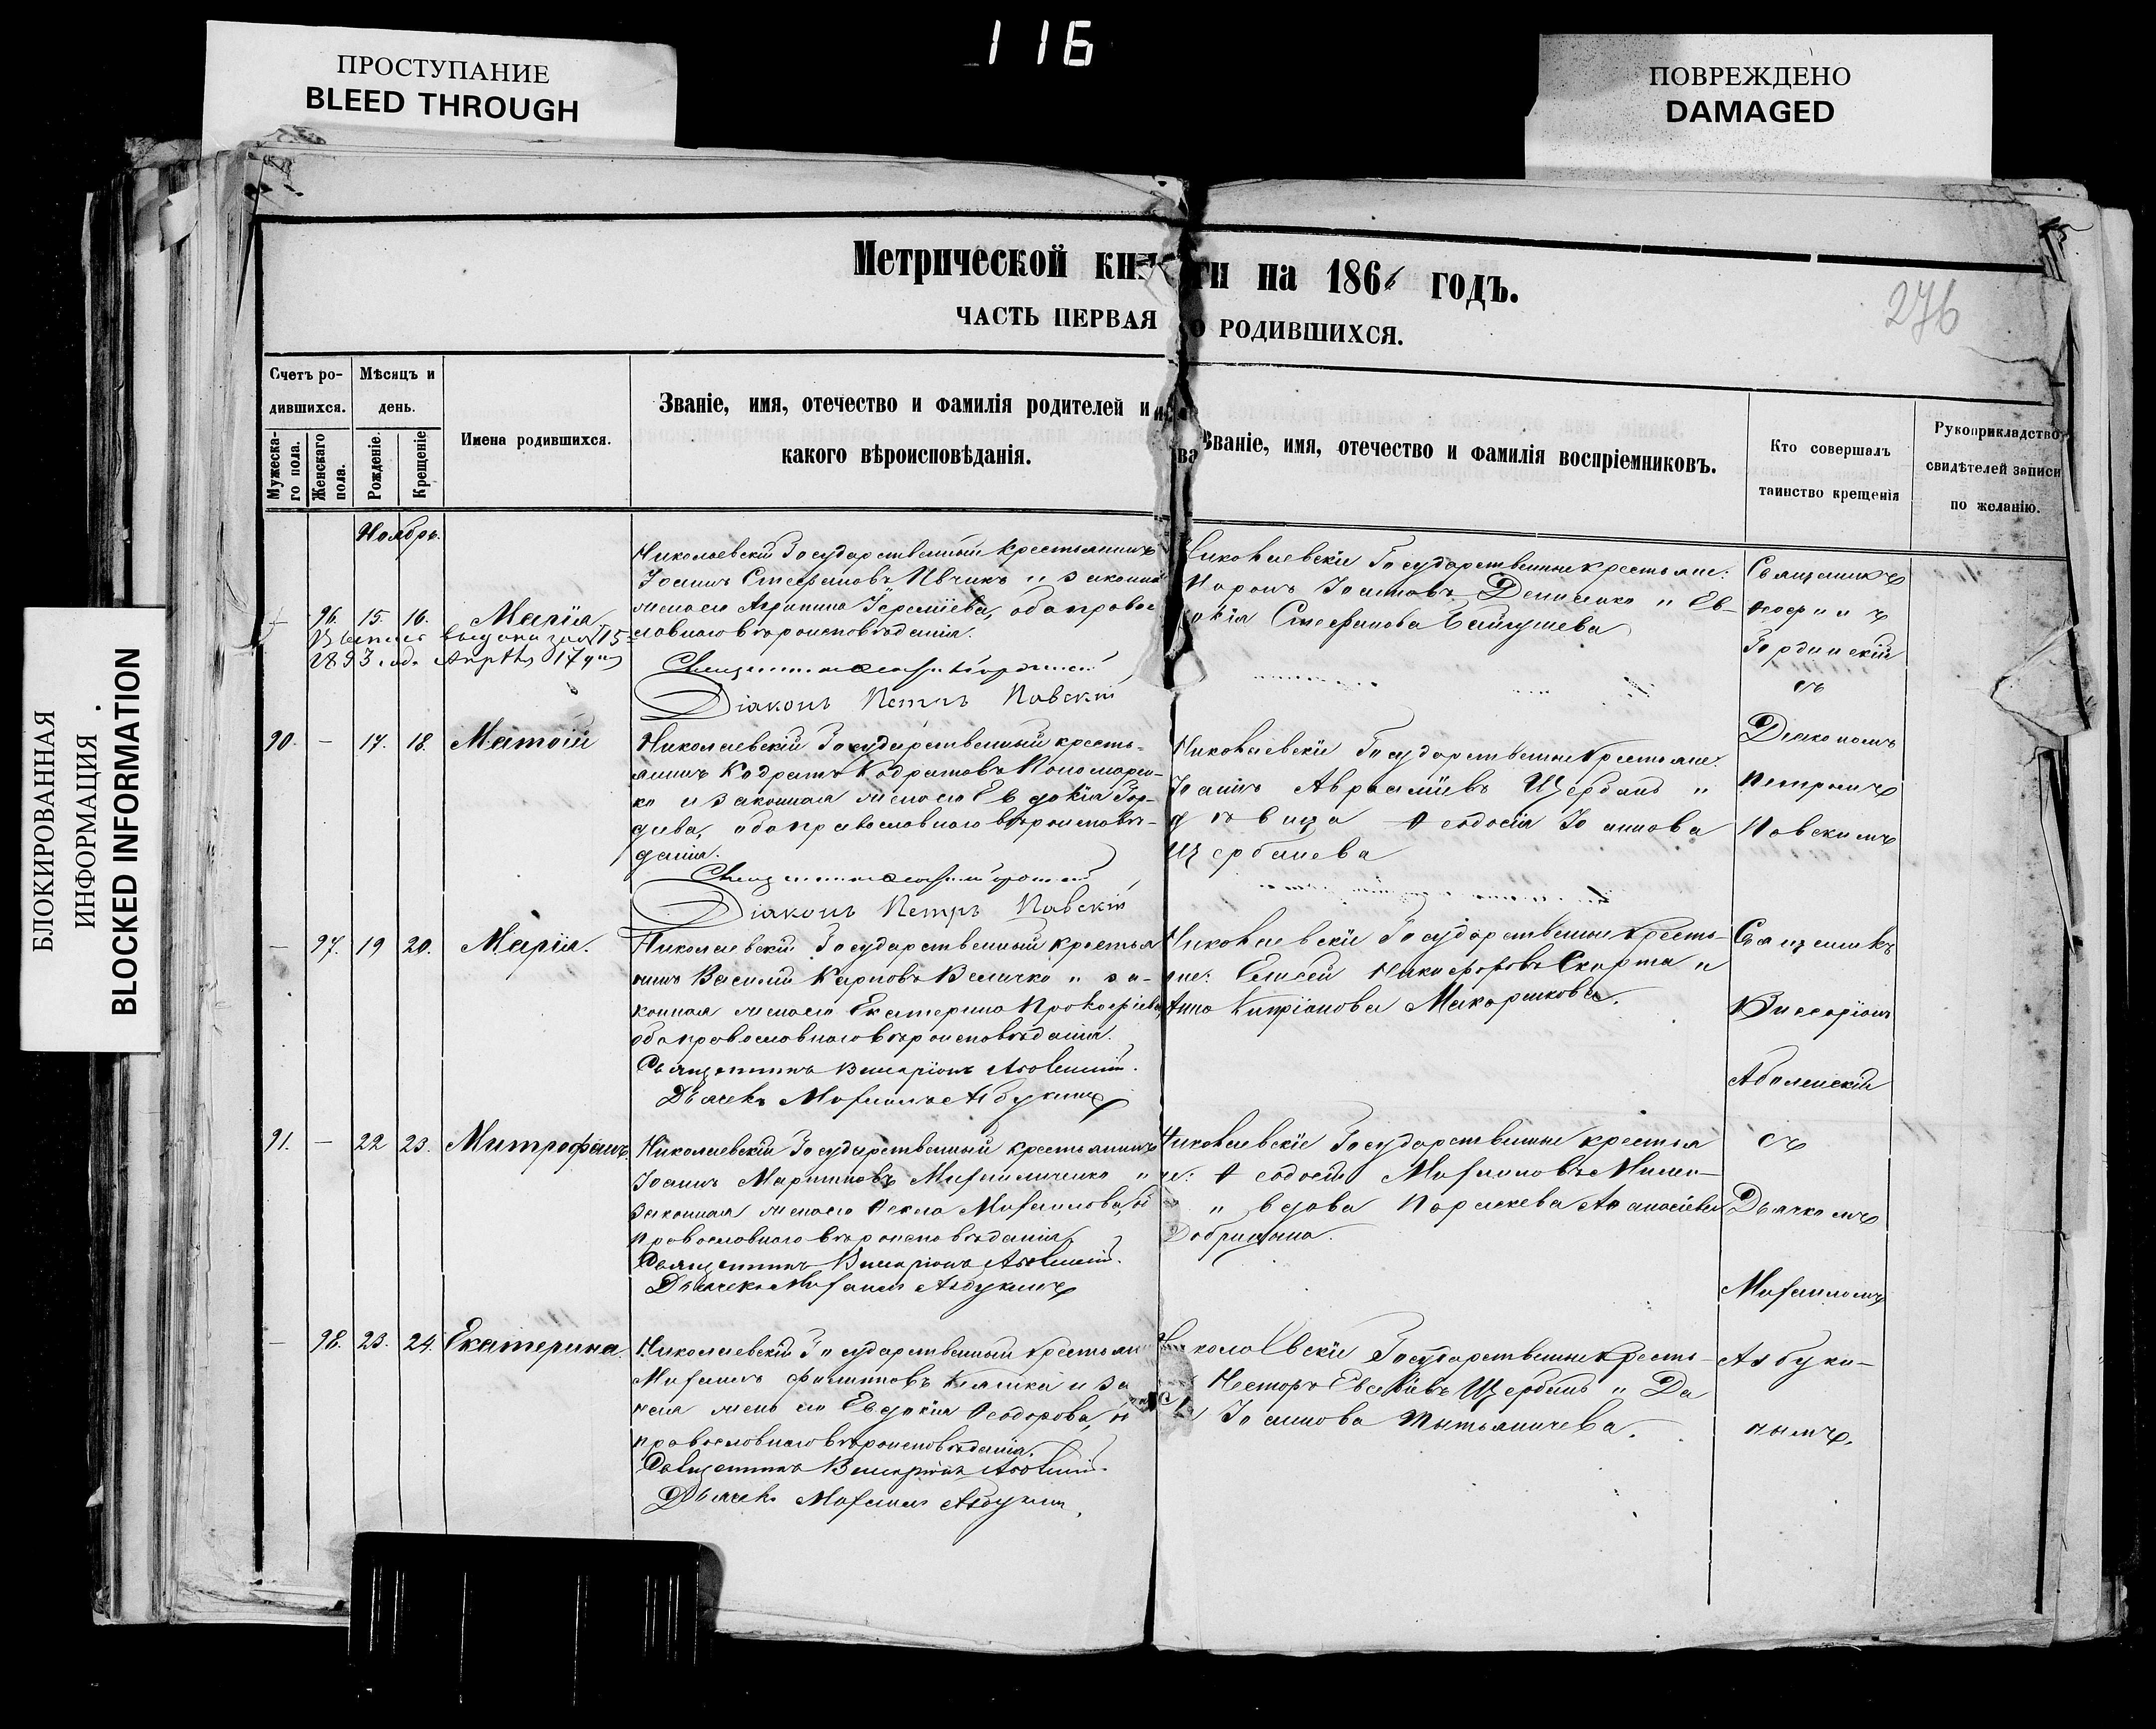 116
ПРОСТУПАНИЕ
BLEED THROUGH
ПОВРЕЖДЕНО
DAMAGED
БЛОКИРОВАННАЯ
ИНФОРМАЦИЯ
BLOCKED INFORMATION
Метрической книги на 1866 годъ.
276
ЧАСТЬ ПЕРВАЯ О РОДИВШИХСЯ.
Счетъ ро-
дившихся.
Мужеска-
го пола.
Женскаго
пола.
Мѣсяцъ и
день.
Рожденіе.
Крещеніе
Имена родившихся.
Званіе, имя, отечество и фамилія родителей и
какого вѣроисповѣданія.
Званіе, имя, отечество и фамилія воспріемниковъ.
Кто совершалъ
таинство крещенія
Рукоприкладство
свидѣтелей записи
по желанію.
Ноябрь.
— 96. 15. 16. Марія
1893 года Апрѣля 17 дня
Николаевскій Государственный крестьянинъ
Іоаннъ Стефановъ Ивчикъ и законная
жена его Агрипина Іереміева, оба правос
лавнаго вѣроисповѣданія.
Діаконъ Петръ Павскій
Николаевскіе Государственные крестьяне:
Іоанновъ Денисенко и Ев-
докія Стефанова
Священникъ
Іосифъ
Гординскій
съ
90. — 17. 18. Матѳій
Николаевскій Государственный кресть-
янинъ Кодратъ Кодратовъ Пономарен-
ко и законная жена его Евдокія Гор-
деева, оба православнаго вѣроисповѣ-
данія.
Діаконъ Петръ Павскій
Николаевскіе Государственные крестьяне:
Іоаннъ Авраміевъ Щербань и
дѣвица Ѳеодосія Іоаннова
Щербанева
Діакономъ
Петромъ
Павскимъ
— 97. 19 20. Марія.
Николаевскій Государственный крестья
нинъ Василій Карповъ Величко и за-
конная жена его Екатерина Прокофіева,
оба православнаго вѣроисповѣданія.
Священникъ Виссаріонъ Аболенскій.
Дьячекъ Михаилъ Азбукинъ
Николаевскіе Государственные кресть-
яне: Елисей Никифоровъ Скирта и
Анна Кипріанова Макаренкова.
Священникъ
Виссаріонъ
Аболенскій
91. — 22 23. Митрофанъ.
Николаевскій Государственный крестьянинъ
Іоаннъ Мартиновъ Михайличенко и
законная жена его Ѳекла Михаилова, об
православнаго вѣроисповѣданія.
Священникъ Виссаріонъ Аболенскій.
Дьячекъ Михаилъ Азбукинъ
Николаевскіе Государственные крестья
не: Ѳеодосій Михаиловъ
и вдова Параскева Аѳанасіева
съ
Дьячкомъ
Михаиломъ
— 98. 23. 24. Екатерина.
Николаевскій Государственный крестьян
Михаилъ Филиповъ и за
ная жена его Евдокія Ѳеодорова, об
православнаго вѣроисповѣданія.
Священникъ Виссаріонъ Аболенскій.
Дьячекъ Михаилъ Азбукинъ
Николаевскіе Государственные кресть-
Несторъ Евсевіевъ Щербань и Да
Іоаннова
Азбуки-
нымъ.